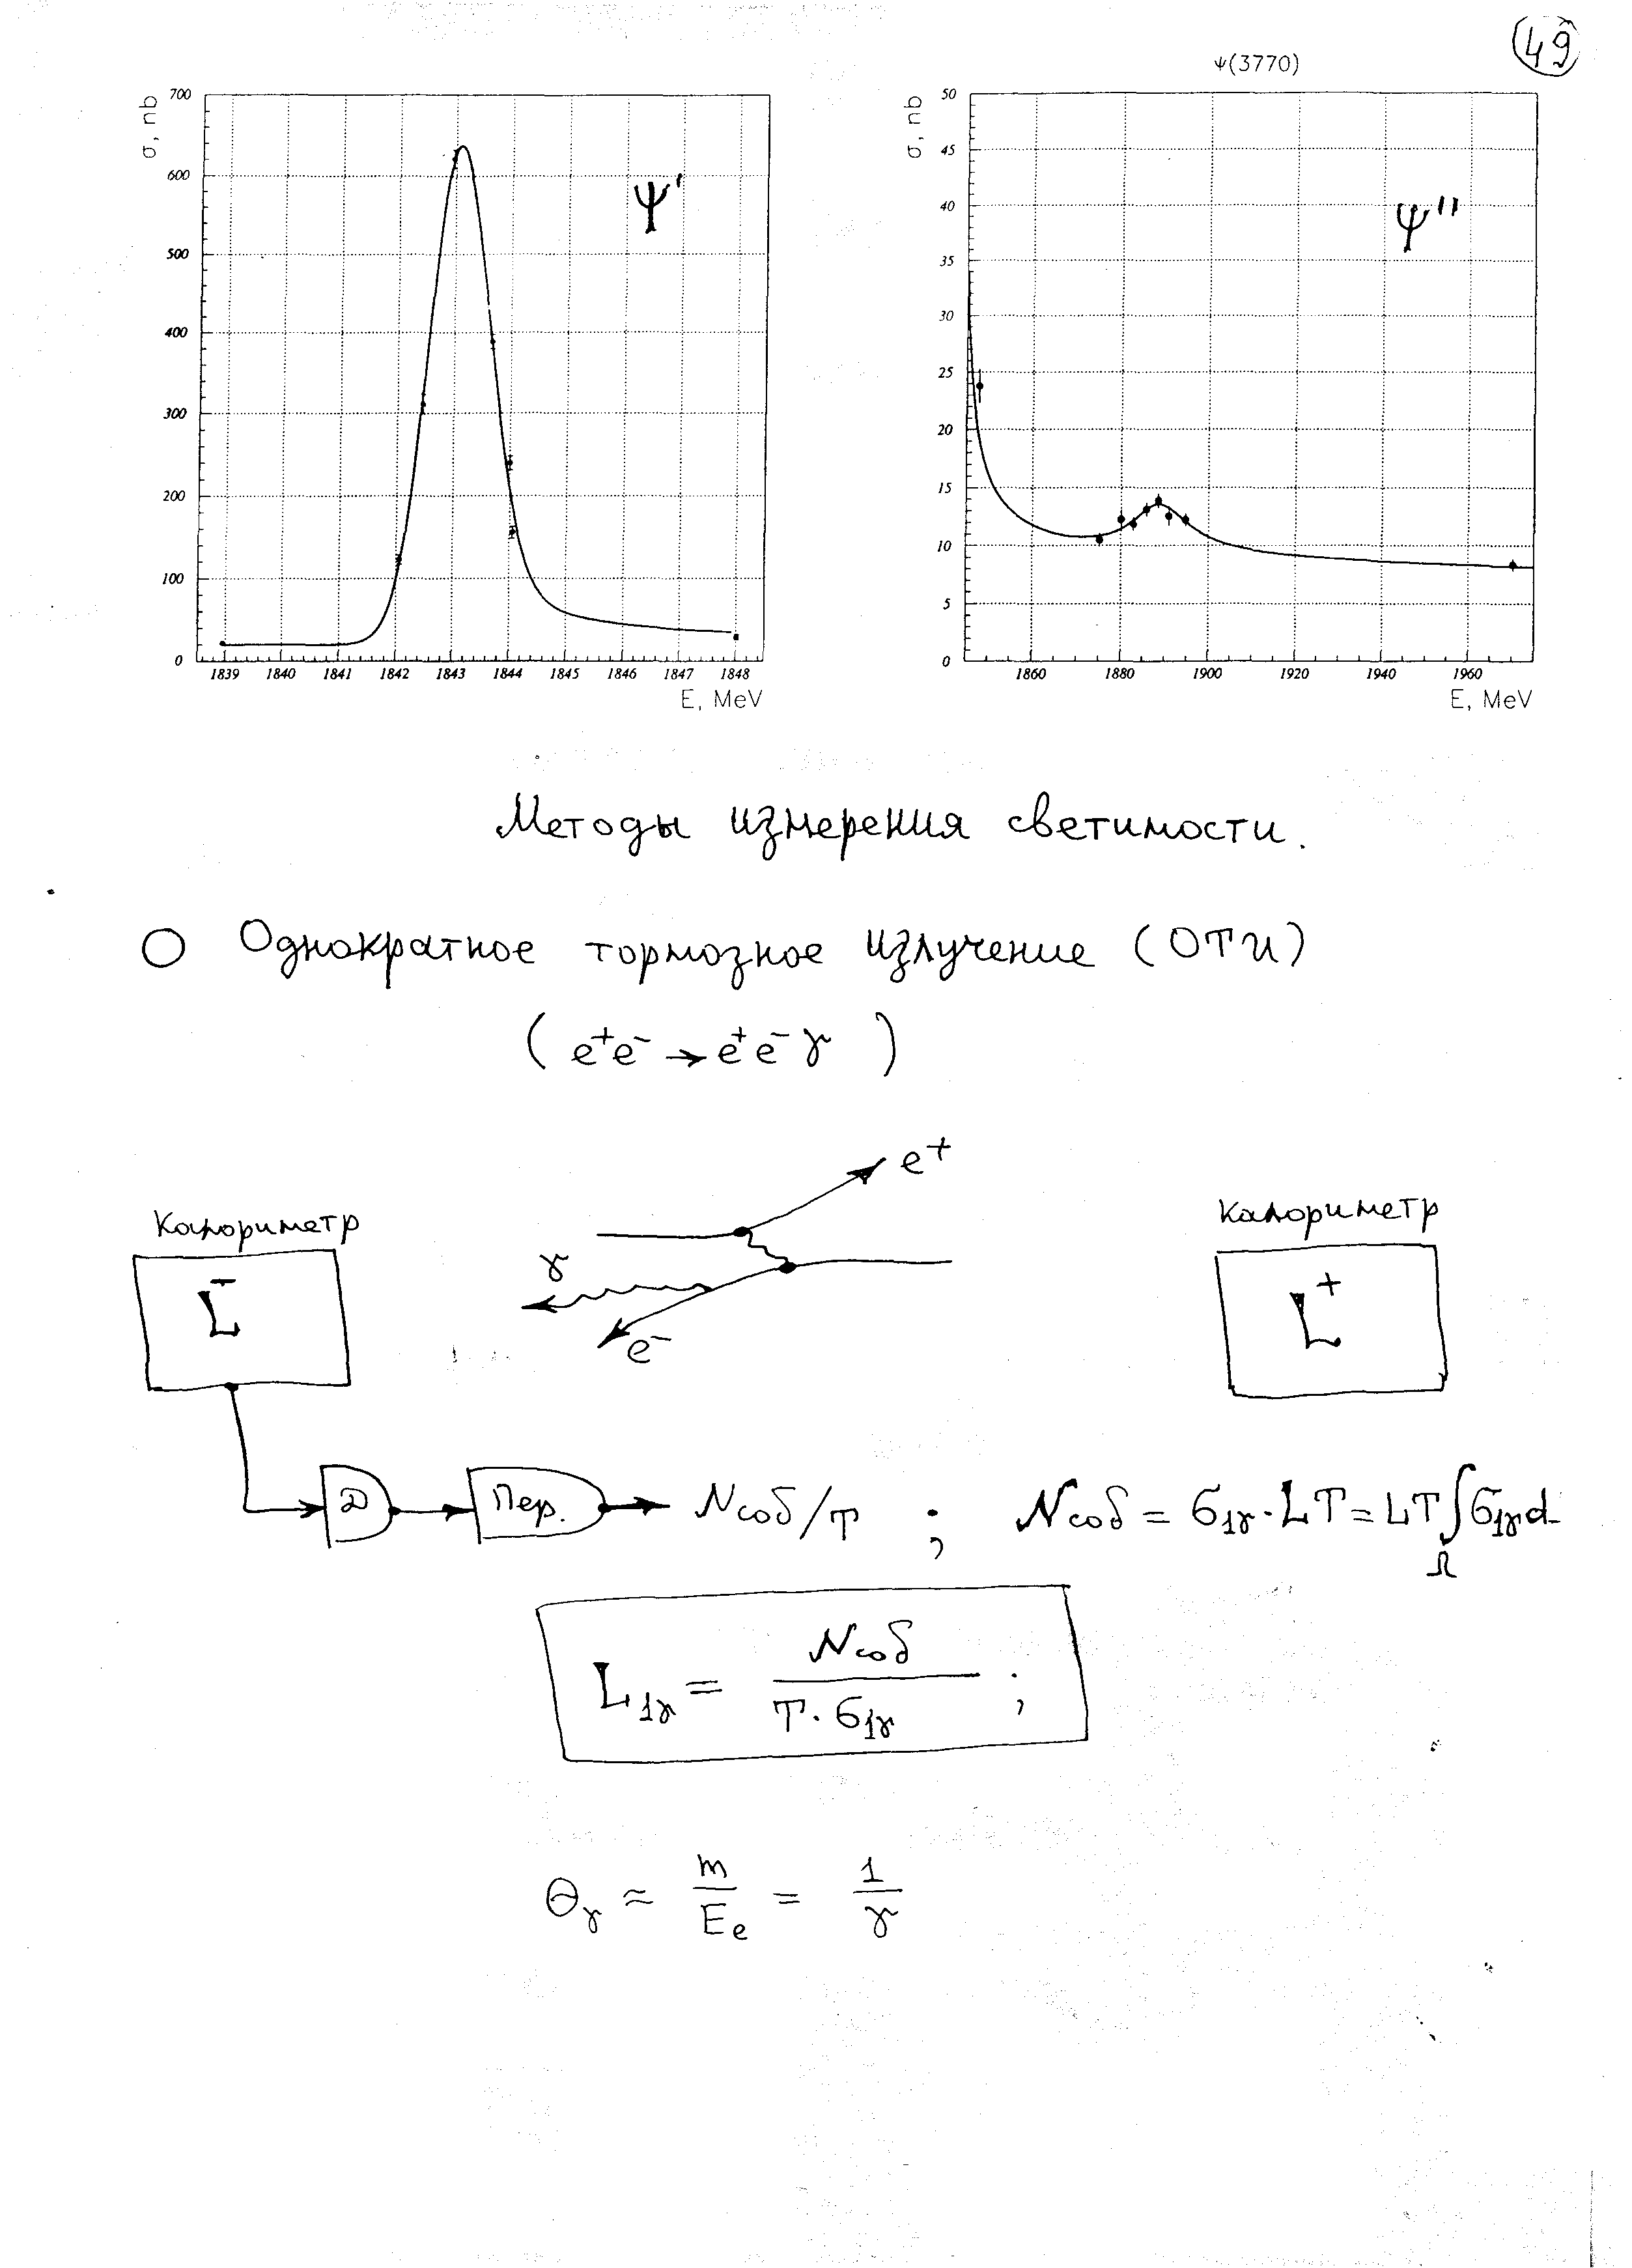 49
ψ(3770)
σ, nb
700
600
500
400
300
200
100
0
Ψ'
1839 1840 1841 1842 1843 1844 1845 1846 1847 1848
E, MeV
σ, nb
50
45
40
35
30
25
20
15
10
5
0
Ψ''
1860 1880 1900 1920 1940 1960
E, MeV
Методы измерения светимости.
Однократное тормозное излучение (ОТИ)
( e⁺e⁻ → e⁺e⁻γ )
e⁺
γ
e⁻
Калориметр
L⁻
Калориметр
L⁺
Д Пер. Nсоб/T ; Nсоб = σ1γ · LT = LT ∫Ω σ1γ d
L1γ = Nсоб / T · σ1γ ;
Θγ ≈ m/Ee = 1/γ